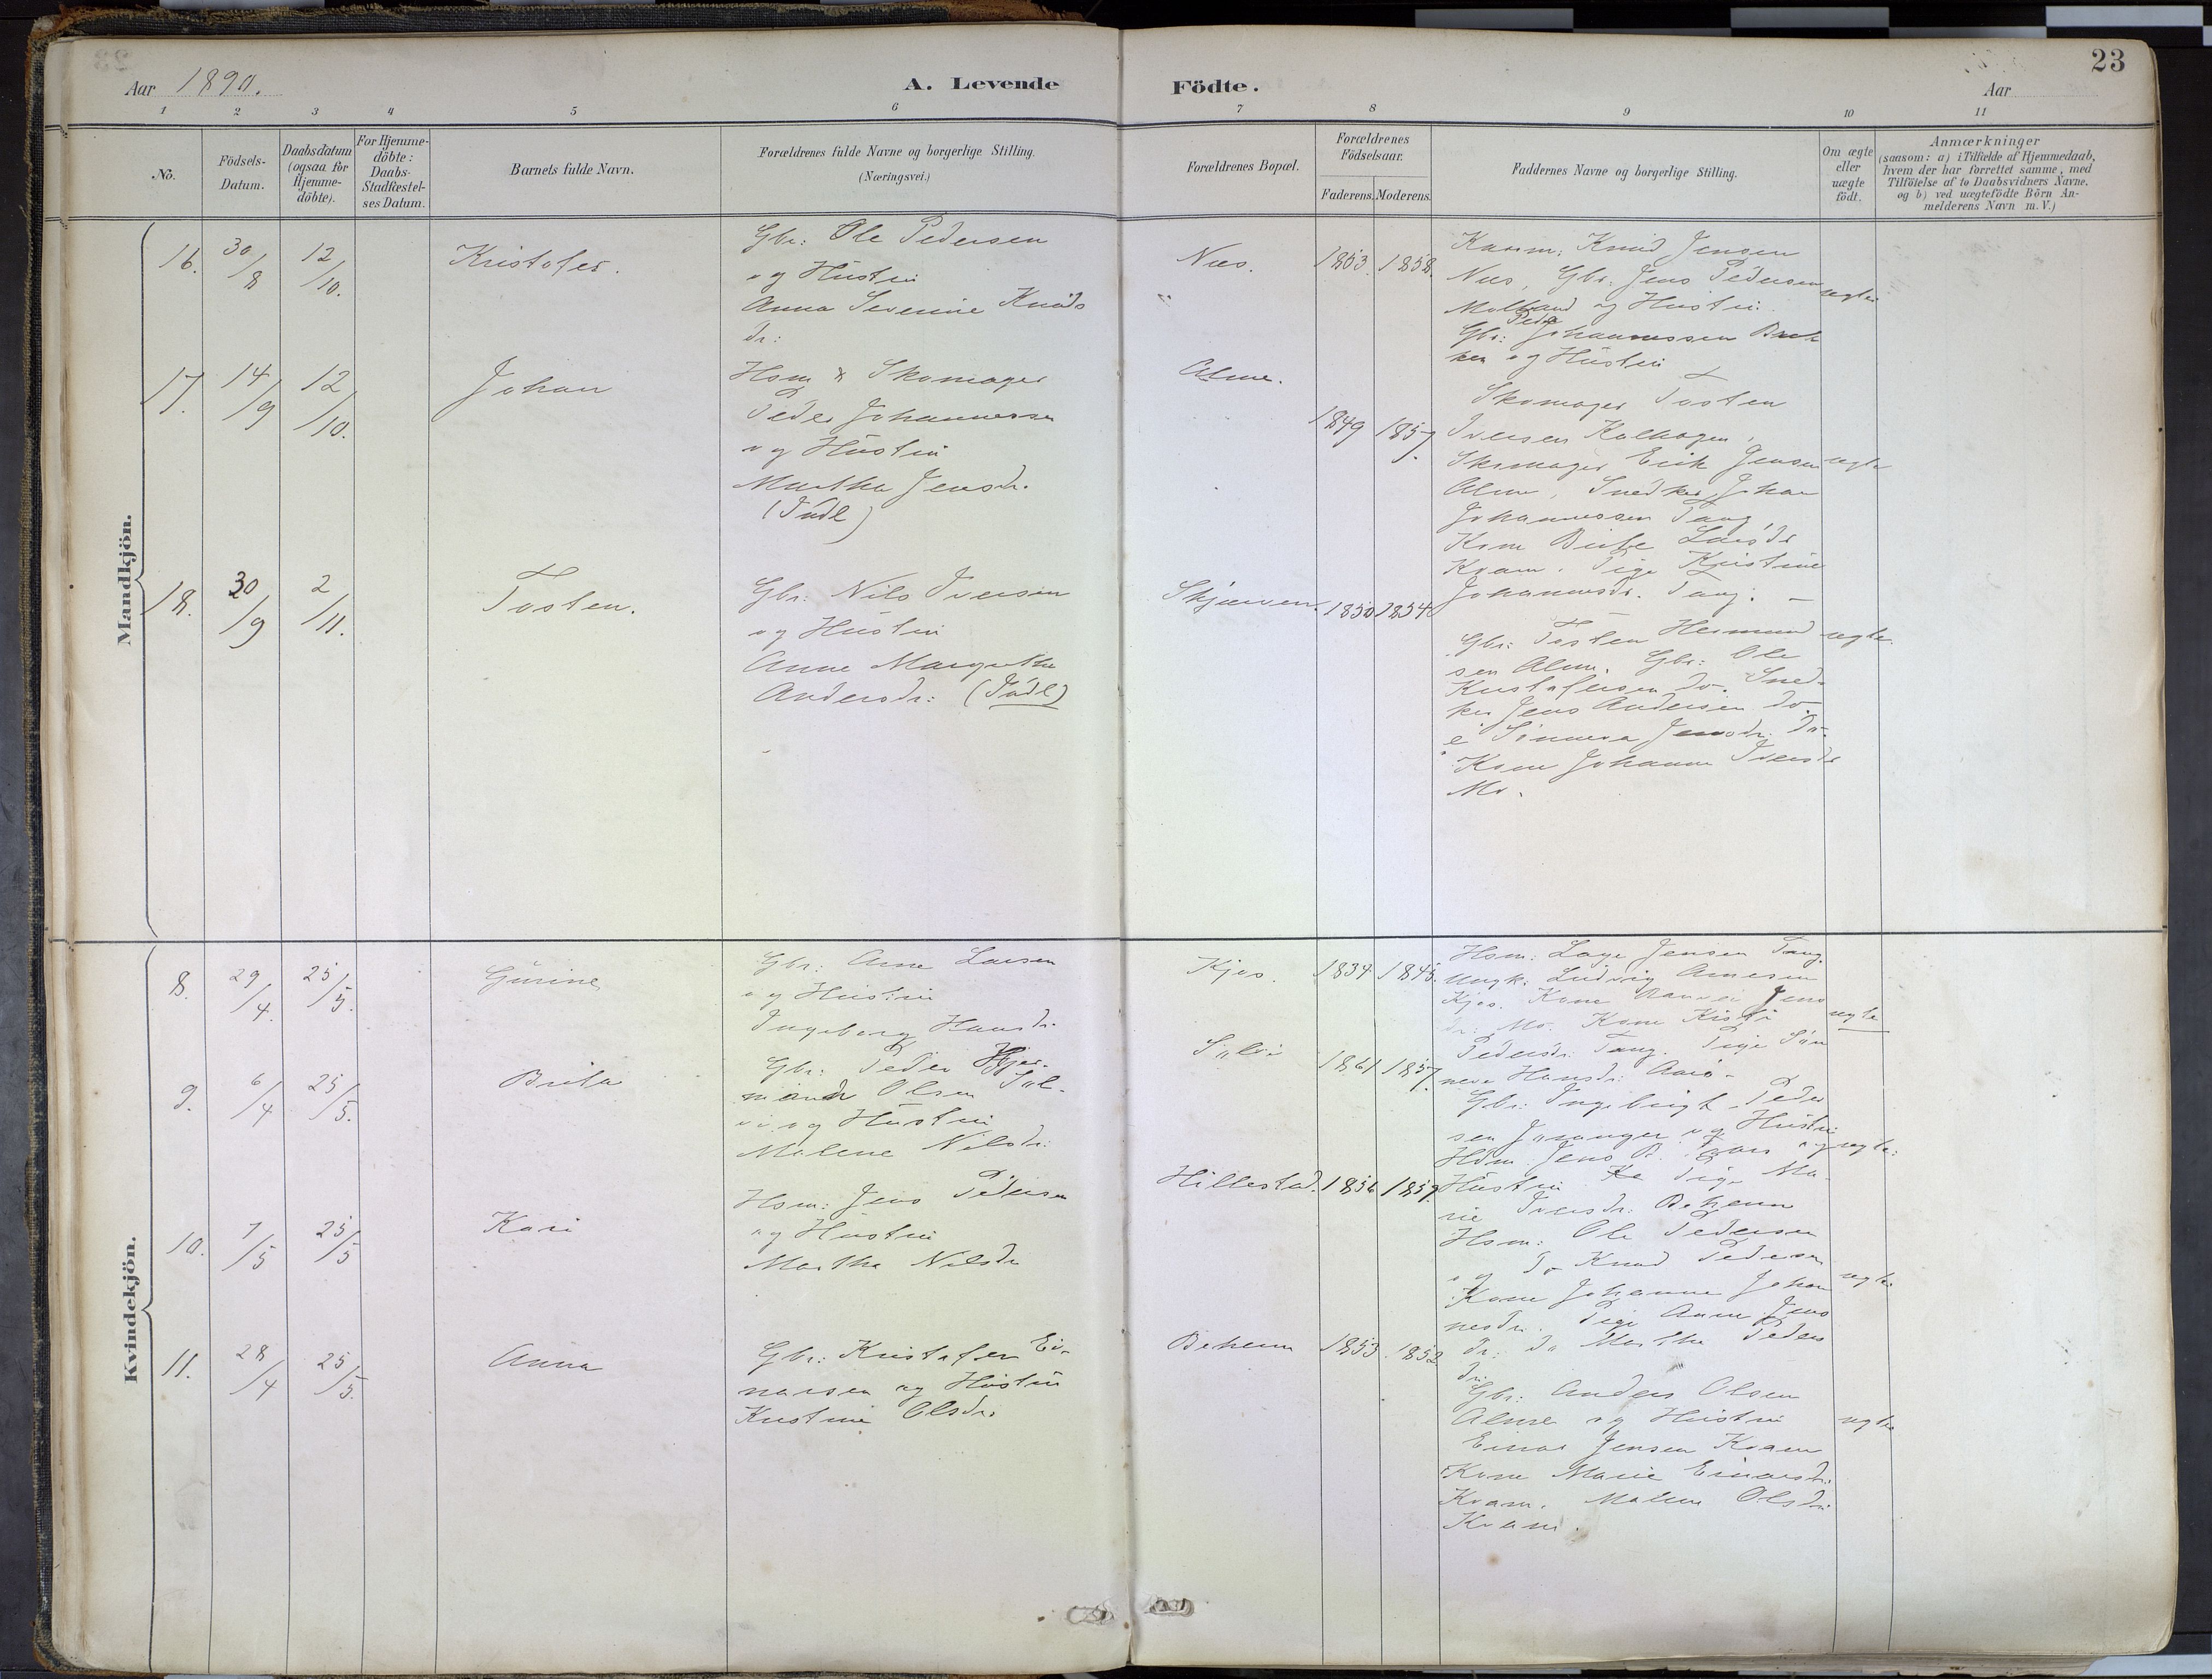 23
Aar 1890.
A. Levende Födte.
Aar
1 2 3 4 5 6 7 8 9 10 11
No.
Födsels-Datum.
Daabsdatum (ogsaa for Hjemme-döbte).
For Hjemme-döbte: Daabs-Stadfæstel-ses Datum.
Barnets fulde Navn.
Forældrenes fulde Navne og borgerlige Stilling.
(Næringsvei.)
Forældrenes Bopæl.
Forældrenes Födselsaar.
Faderens. Moderens.
Faddernes Navne og borgerlige Stilling.
Om ægte eller uægte födt.
Anmærkninger
(saasom: a) i Tilfælde af Hjemmedaab,
hvem der har forrettet samme, med
Tilföielse af to Daabsvidners Navne,
og b) ved uægtefödte Börn An-
melderens Navn m. V.)
Mandkjön.
16. 30/8 12/10. Kristofer.
Gbr: Ole Pedersen
og Hustru
Anna Severine Knuds
dr:
Nes. 1853. 1858.
Kaarm: Knud Jensen
Nes, Gbr. Jens Pedersen
Molland og Hustru.
Peder
Gbr: Johannessen Bak
ken og Hustru
ægte
17. 14/9 12/10. Johan
Hsm & Skomager
Peder Johannessen
og Hustru
Martha Jensdr.
(Födl)
Alme.
1849 1857.
Skomager Tosten
Iversen Kalhagen,
Skomager Erik Jensen
Alme, Snedker Johan
Johannessen Tang
Kone Birte Larsdr
Kvam. Pige Kristine
Johannesdr. Tang. —
ægte
18. 30/9 2/11. Tosten.
Gbr: Nils Iversen
og Hustru
Anne Margrethe
Andersdr: (Födl)
Skjerven. 1850 1854
Gbr: Tosten Hermund
sen Alme. Gbr: Ole
Kristofersen do. Sned-
ker Jens Andersen do
Sinneva Jensdr. do.
Kone Johanne Iversdr
Mo.
ægte.
Kvindekjön.
8. 29/4. 25/5. Gurine
Gbr: Arne Larsen
og Hustru
Ingeborg Hansdr.
Kjos. 1834. 1845.
Hsm: Lage Jensen Tang.
Ungk: Ludvig Arnesen
Kjos. Kone Jens
dr: Mo. Kone Kisti
Pedersdr. Tang. Pige Sün
neva Hansdr:
ægte
9. 6/4 25/5. Brita
Gbr: Peder Hjer-
mand Olsen Sol-
vi og Hustru
Malene Nilsdr:
Solvi 1861 1857.
Gbr: Ingebrigt Peder
sen og Hustru
Hsm Jens og
Hustru Pige Ma-
rie Iversdr: Beheim
ægte.
10. 7/5 25/5 Kari
Hsm: Jens Pedersen
og Hustru
Martha Nilsdr
Hillestad. 1856 1859.
Hsm: Ole Pedersen
og do Knud Pedersen
Kone Johanne Johan
nesdr. Pige Anne Jens
dr: do Martha Peders
dr.
ægte
11. 28/4 25/5. Anna
Gbr: Kristofer Ei-
narsen og Hustru
Kristine Olsdr.
Beheim 1853 1852
Gbr: Anders Olsen
Alme og Hustru
Einar Jensen Kvam
Kone Marie Einarsdr.
Kvam. Malene Olsdr:
Kvam.
ægte